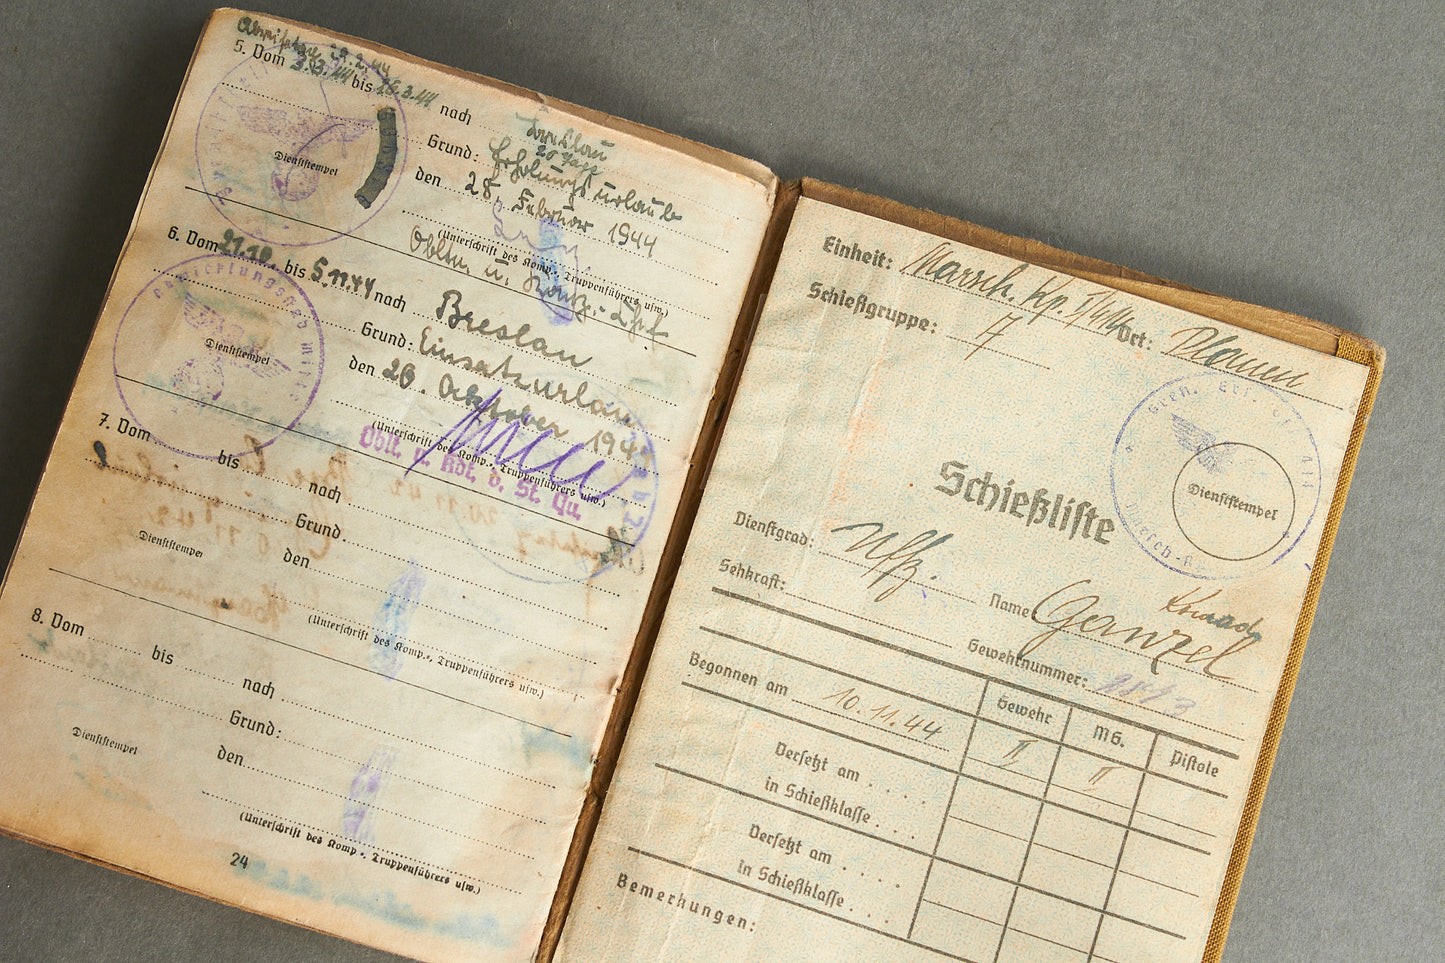 5. Vom 3.3.44 bis 26.3.44 nach Breslau
20 Tage
Grund: Erholungsurlaub
den 28. Februar 1944
(Unterschrift des Komp.-, Truppenführers usw.)
Obltn. u. Komp.-Chef
Dienststempel
6. Vom 21.10. bis 5.11.44 nach Breslau
Grund: Einsatzurlaub
den 20. Oktober 194
(Unterschrift des Komp.-, Truppenführers usw.)
Oblt. u. Kdt. d. St. Qu.
Dienststempel
7. Vom
bis
nach
Grund
den
Dienststempel
(Unterschrift des Komp.-, Truppenführers usw.)
8. Vom
bis
nach
Grund:
den
Dienststempel
(Unterschrift des Komp.-, Truppenführers usw.)
24
Einheit: Marsch. Kp. Ort: Plauen
Schießgruppe: 7
Schießliste
Dienststempel
Dienstgrad: Uffz. Name Ganzel
Sehkraft: Gewehrnummer:
Begonnen am 10.11.44
Gewehr MG. Pistole
II II
Versetzt am
in Schießklasse
Versetzt am
in Schießklasse
Bemerkungen: